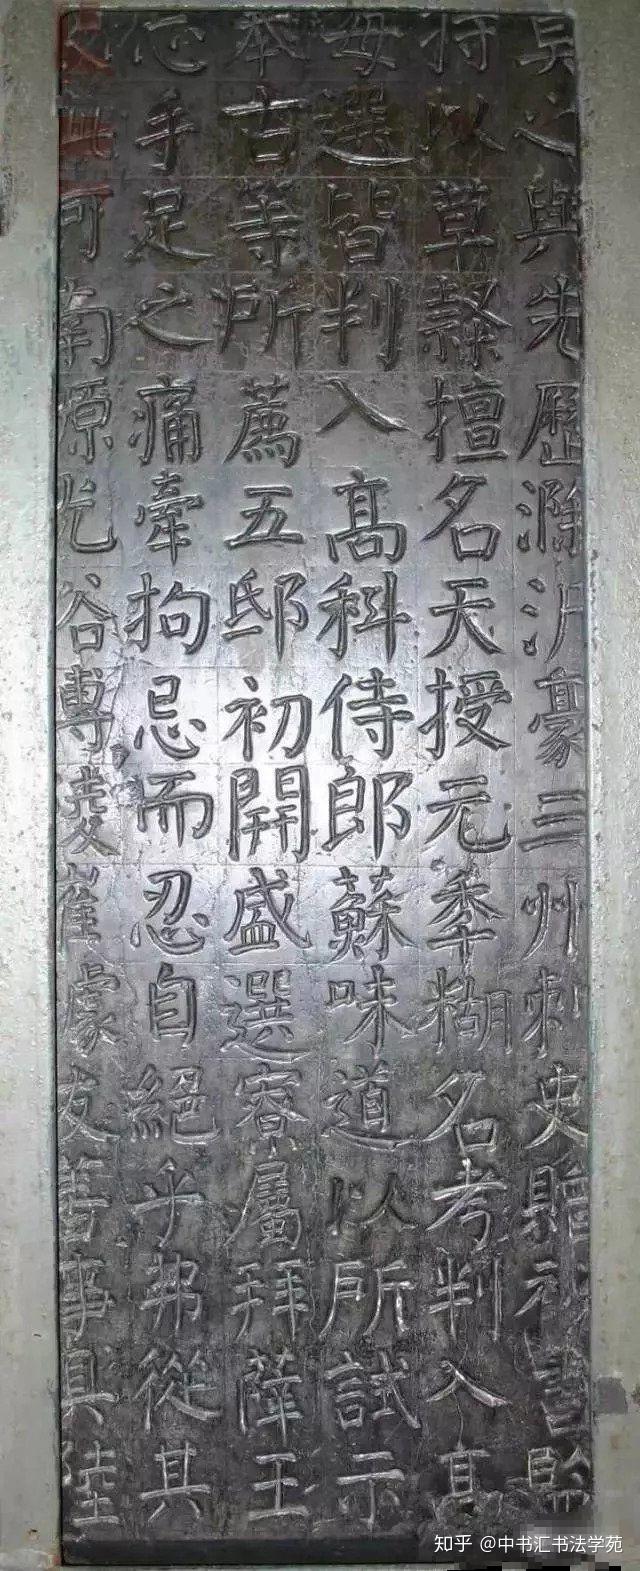 之與先歷滁沂豪三州刺史贈祕書監
特以草隸擅名天授元秊糊名考判入高
每選皆判入髙科侍郎蘇味道以所試示
奉古等所薦五邸初開盛選寮屬拜薛王
忘手足之痛牽拘忌而忍自絕乎弗從其
河南源光裕博陵崔璩友善事具陸
知乎 @中书汇书法学苑